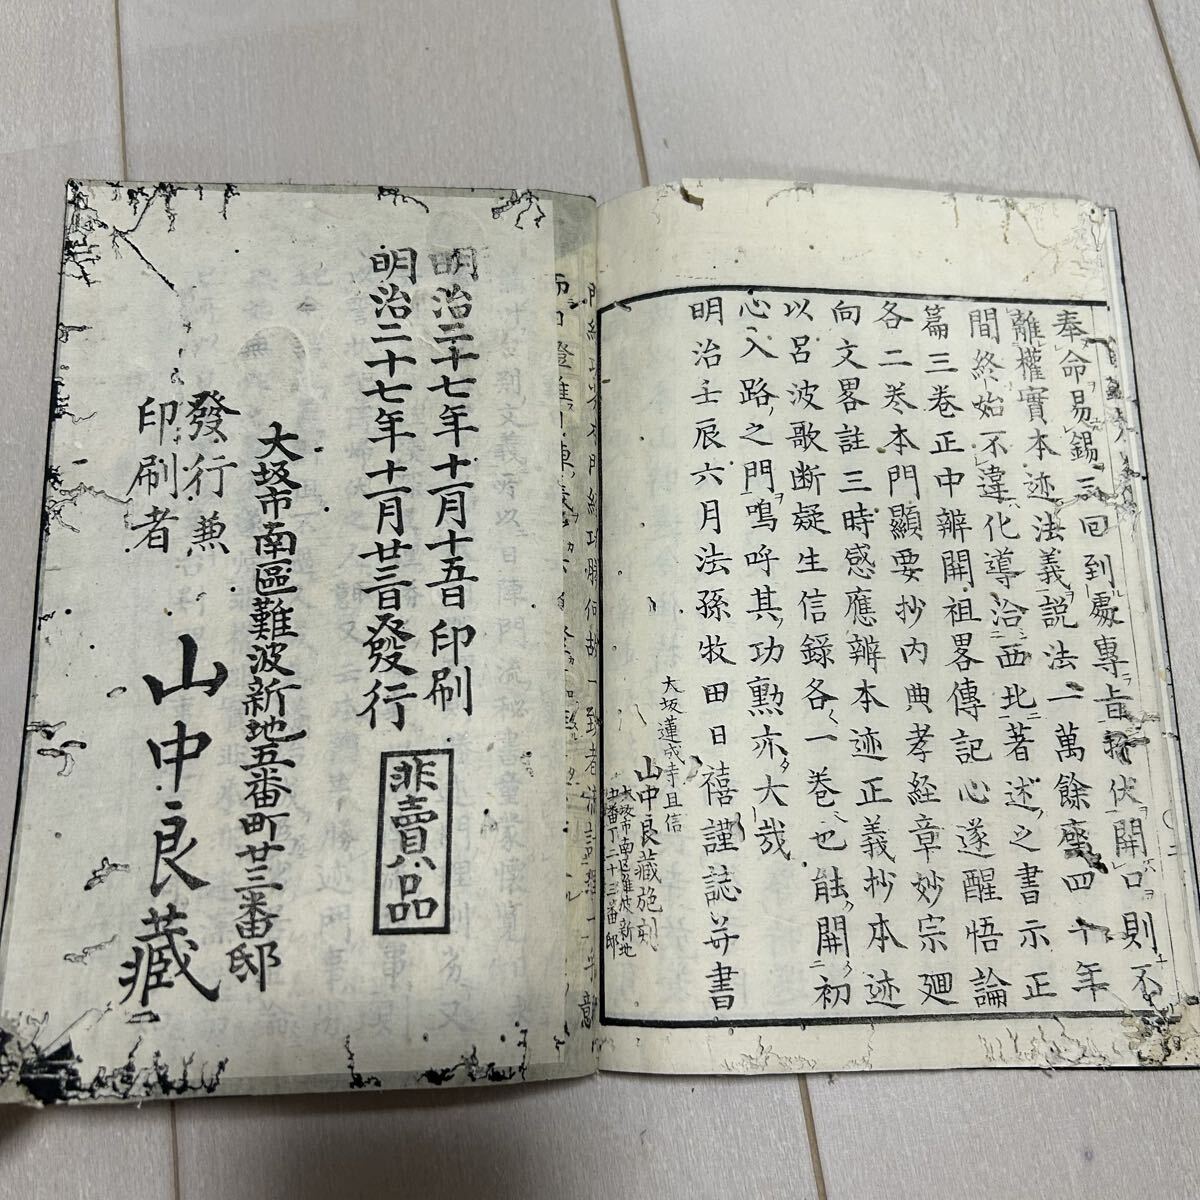 奉命易錫三回到處專旨折伏開口則不
離權實本迹法義説法一萬餘座四十年
間終始不違化導洽西北著述之書示正
篇三卷正中辨開祖畧傳記心遂醒悟論
各二卷本門顯要抄內典孝経章妙宗廻
向文畧註三時感應辨本迹正義抄本迹
以呂波歌断疑生信録各一卷也能開初
心入路之門鳴呼其功勲亦大哉
明治壬辰六月法孫牧田日禧謹誌并書
大坂蓮成寺且信
山中良藏施刻
大坂市南区難波新地
五番丁二十三番邸
明治二十七年十一月十五日印刷
明治二十七年十一月廿三日發行
非賣品
大坂市南區難波新地五番町廿三番邸
發行兼
印刷者
山中良藏